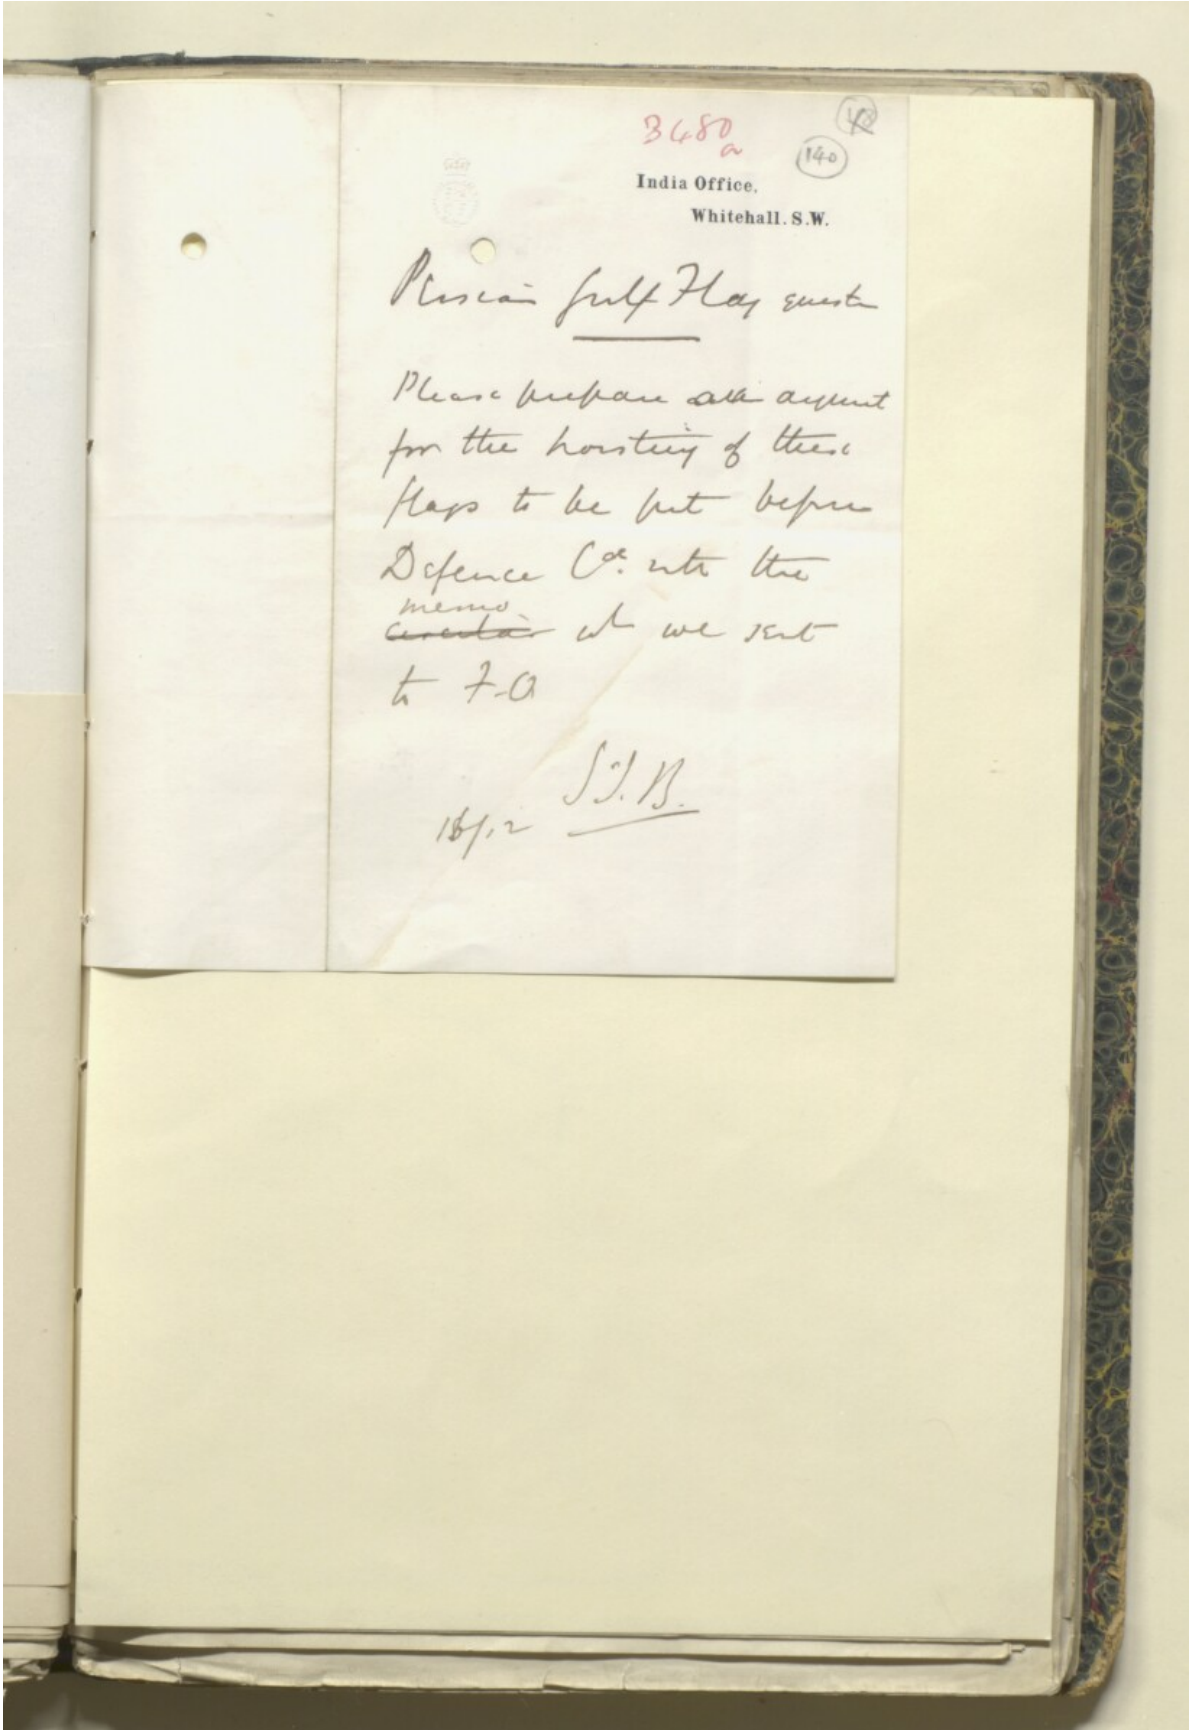 3480
a
140
India Office,
Whitehall. S.W.
Persian Gulf Flag
Please prepare argument
for the hoisting of these
flags to be put before
Defence Cee. with the
memo
wh we sent
to F.O
18/12